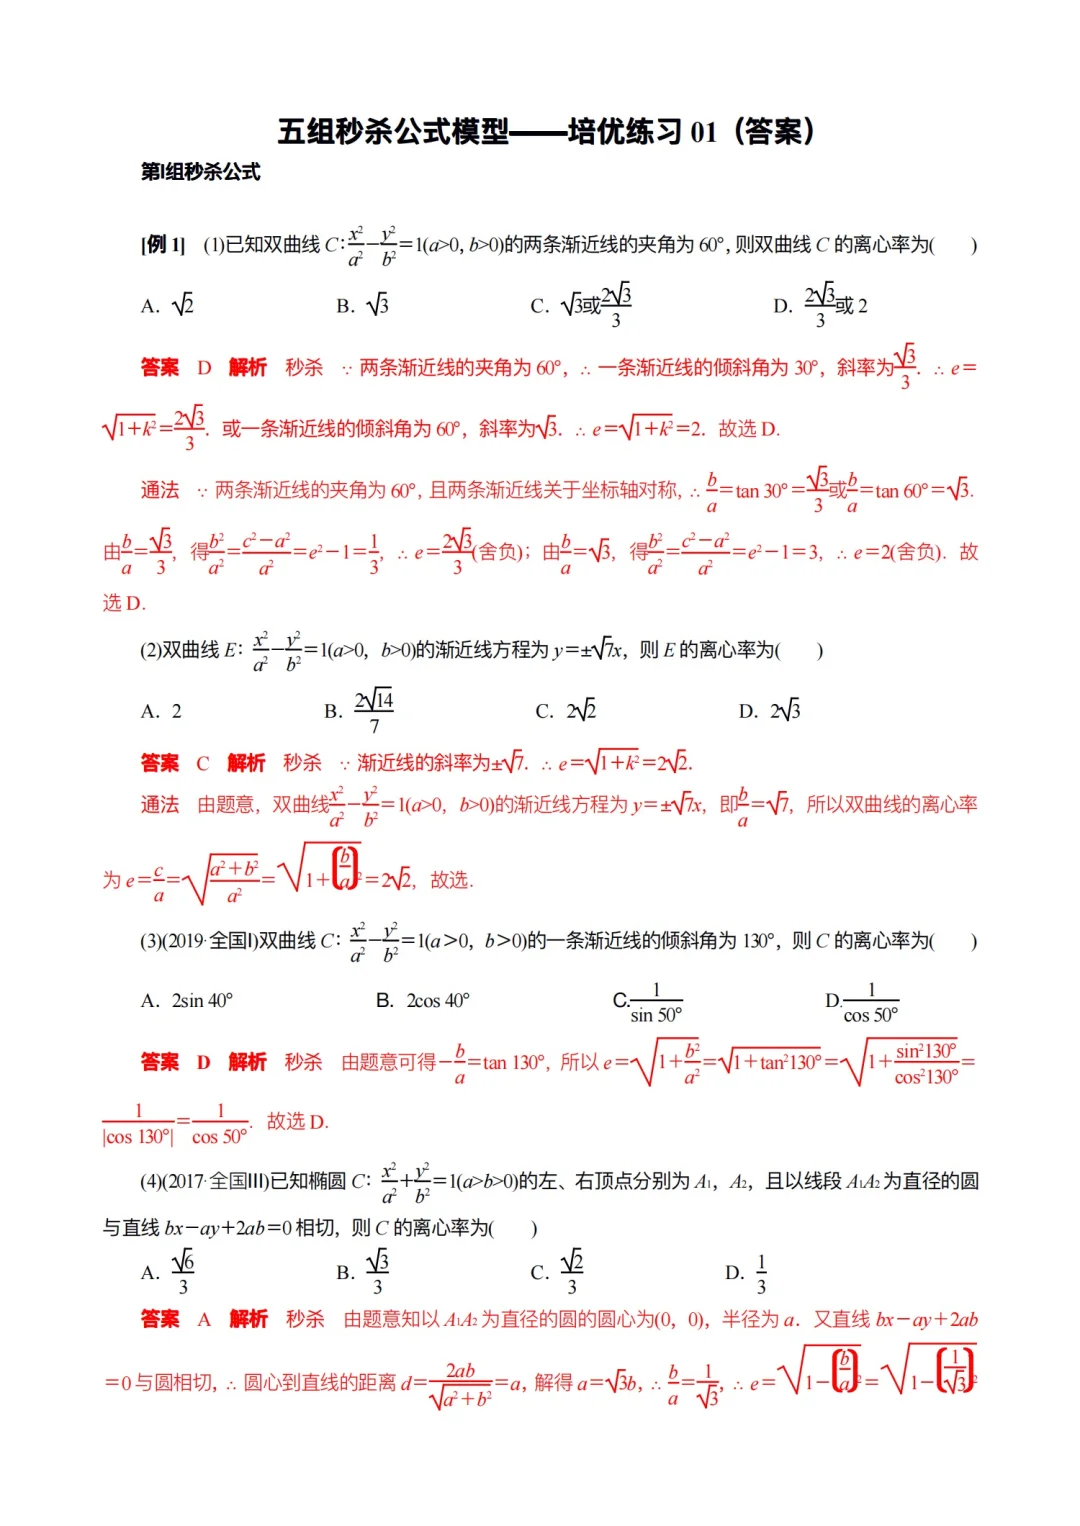 五组秒杀公式模型——培优练习 01（答案）
第Ⅰ组秒杀公式
[例 1] (1)已知双曲线 C：x²/a²－y²/b²＝1(a>0, b>0)的两条渐近线的夹角为 60°, 则双曲线 C 的离心率为( )
A．√2 B．√3 C．√3或2√3/3 D．2√3/3或 2
答案 D 解析 秒杀 ∵ 两条渐近线的夹角为 60°，∴ 一条渐近线的倾斜角为 30°，斜率为√3/3．∴ e＝
√(1+k²)＝2√3/3．或一条渐近线的倾斜角为 60°，斜率为√3．∴ e＝√(1+k²)＝2．故选 D.
通法 ∵ 两条渐近线的夹角为 60°, 且两条渐近线关于坐标轴对称, ∴ b/a＝tan 30°＝√3/3或b/a＝tan 60°＝√3.
由b/a＝√3/3，得b²/a²＝(c²－a²)/a²＝e²－1＝1/3，∴ e＝2√3/3(舍负)；由b/a＝√3，得b²/a²＝(c²－a²)/a²＝e²－1＝3，∴ e＝2(舍负)．故
选 D.
(2)双曲线 E：x²/a²－y²/b²＝1(a>0，b>0)的渐近线方程为 y＝±√7x，则 E 的离心率为( )
A．2 B．2√14/7 C．2√2 D．2√3
答案 C 解析 秒杀 ∵ 渐近线的斜率为±√7．∴ e＝√(1+k²)＝2√2.
通法 由题意，双曲线x²/a²－y²/b²＝1(a>0，b>0)的渐近线方程为 y＝±√7x，即b/a＝√7，所以双曲线的离心率
为 e＝c/a＝√((a²＋b²)/a²)＝√(1＋(b/a)²)＝2√2，故选.
(3)(2019·全国Ⅰ)双曲线 C：x²/a²－y²/b²＝1(a＞0，b＞0)的一条渐近线的倾斜角为 130°，则 C 的离心率为( )
A．2sin 40° B．2cos 40° C.1/sin 50° D.1/cos 50°
答案 D 解析 秒杀 由题意可得－b/a＝tan 130°，所以 e＝√(1＋b²/a²)＝√(1＋tan²130°)＝√(1＋sin²130°/cos²130°)＝
1/|cos 130°|＝1/cos 50°．故选 D.
(4)(2017·全国Ⅲ)已知椭圆 C：x²/a²＋y²/b²＝1(a>b>0)的左、右顶点分别为 A₁，A₂，且以线段 A₁A₂ 为直径的圆
与直线 bx－ay＋2ab＝0 相切，则 C 的离心率为( )
A．√6/3 B．√3/3 C．√2/3 D．1/3
答案 A 解析 秒杀 由题意知以 A₁A₂ 为直径的圆的圆心为(0，0)，半径为 a．又直线 bx－ay＋2ab
＝0 与圆相切，∴ 圆心到直线的距离 d＝2ab/√(a²＋b²)＝a, 解得 a＝√3b，∴ b/a＝1/√3，∴ e＝√(1－(b/a)²)＝√(1－(1/√3)²)